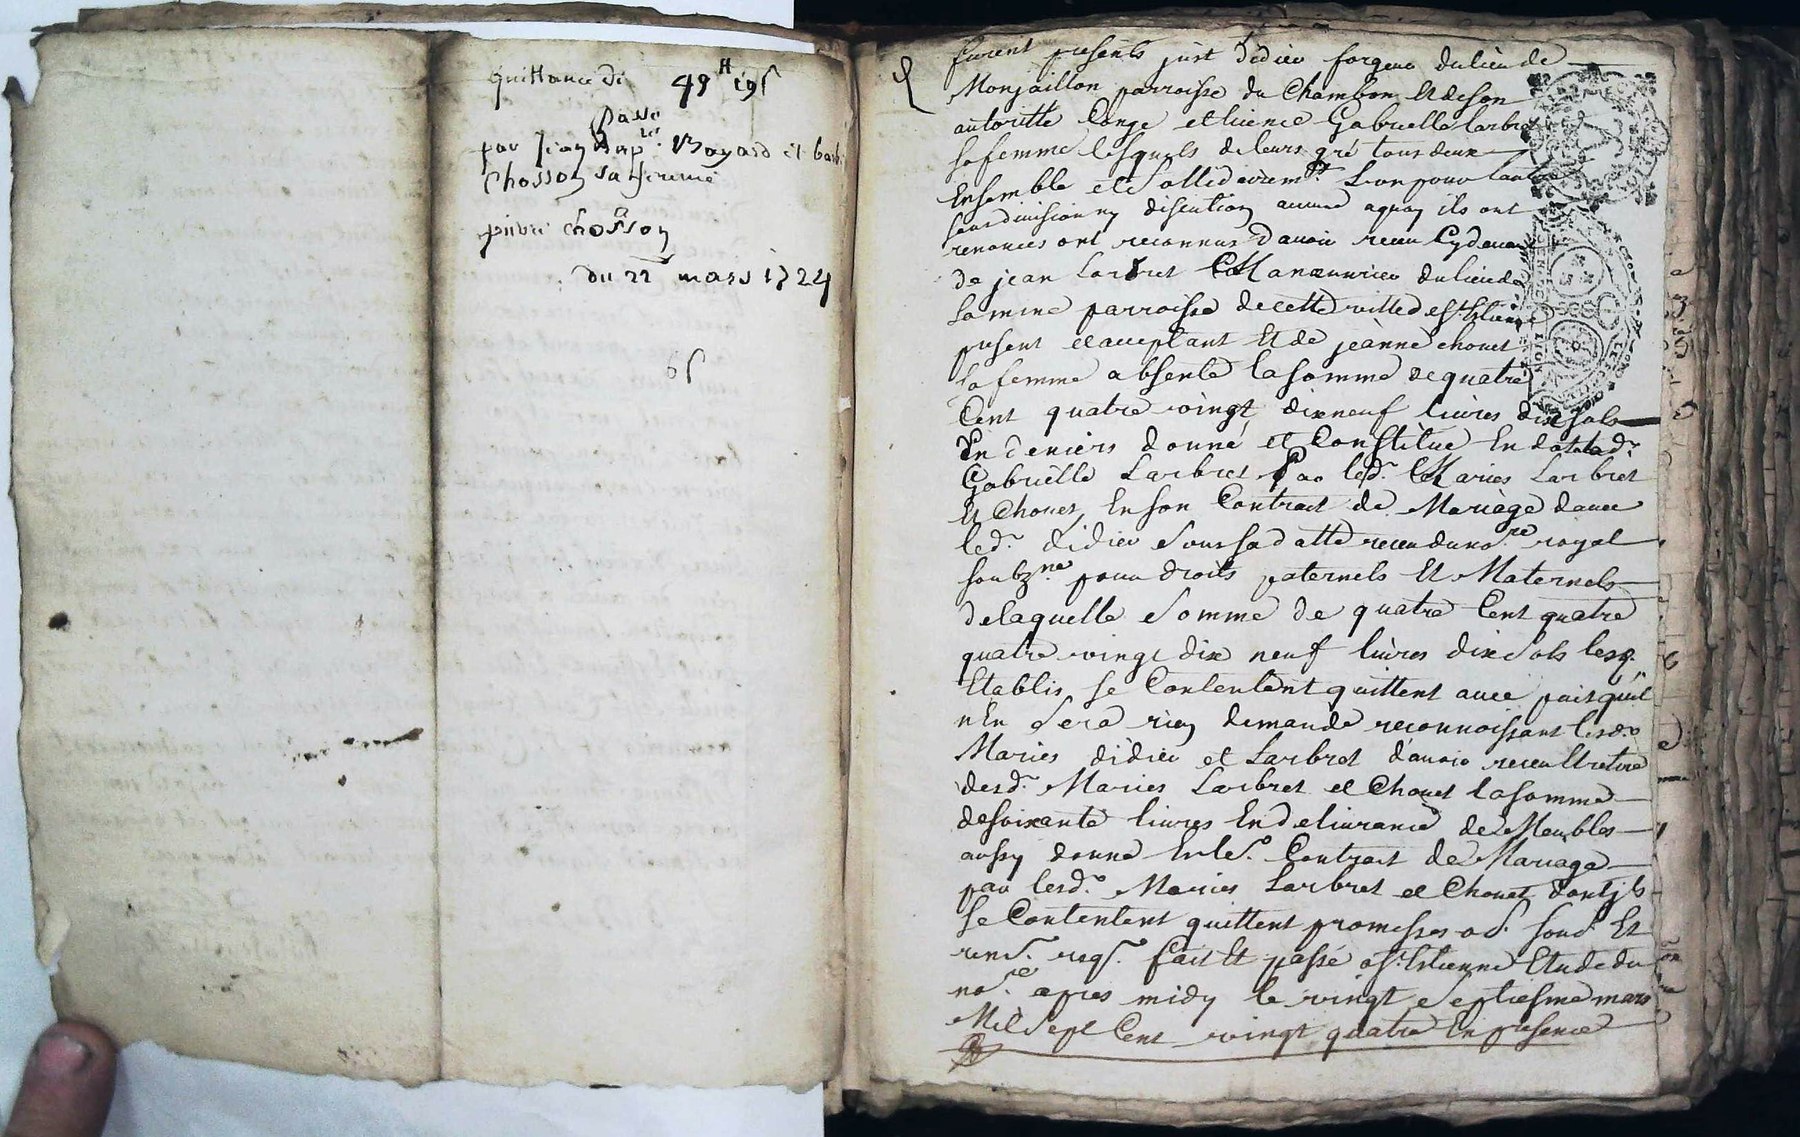 quittance de 49ᵗᵗ 19ˢ
passé
par Jean Bapᵗᵉ Bayard et
Chosson sa femme
pierre chosson
du 22 mars 1724
6ˢ
furent presents just didier forgeur du lieu de
Monjaillon parroisse du Chambon Et de son
autoritte Conge et licence Gabrielle Larbret
sa femme lesquels de leurs gré tous deux
Ensemble et Sollidairemᵗ Lun pour lautre
sans division ny discution aucune aquoy ils ont
renoncés ont reconnus d'avoir receu Cydevant
de jean Larbret Manœuvrier du lieu de
La mine parroisse de cette ville de Sᵗ Estienne
present et acceptant Et de jeanne chouet
sa femme absente la somme de quatre
Cent quatre vingt dixneuf livres dix sols
En deniers donné et Constitue En dot alad.
Gabrielle Larbret Par lesd. Mariés Larbret
Et Chouet En son Contrat de Mariage avec
led. didier Sous sa datte receu du noʳᵉ royal
soubzⁿᵉ pour droits paternels Et Maternels
de laquelle Somme de quatre Cent quatre
quatre vingt dix neuf livres dix Sols lesq.
Etablis se Contentent quittent avec pait quil
nEn Sera rien demandé reconnoissant lesd.
Mariés didier et Larbret d'avoir receu Et retiré
desd. Mariés Larbret et Chouet la somme
de soixante livres En delivrance de Meubles
aussy donné En led. Contrat de Mariage
par lesd. Mariés Larbret et Chouet dont jls
se Contentent quittent promesses obˢ. soubˢ. Et
renˢ. reqˢ. fait Et passé a Sᵗ Estienne Etude du
noʳᵉ apres midy le vingt Septiesme mars
Mil Sept Cent vingt quatre En presence